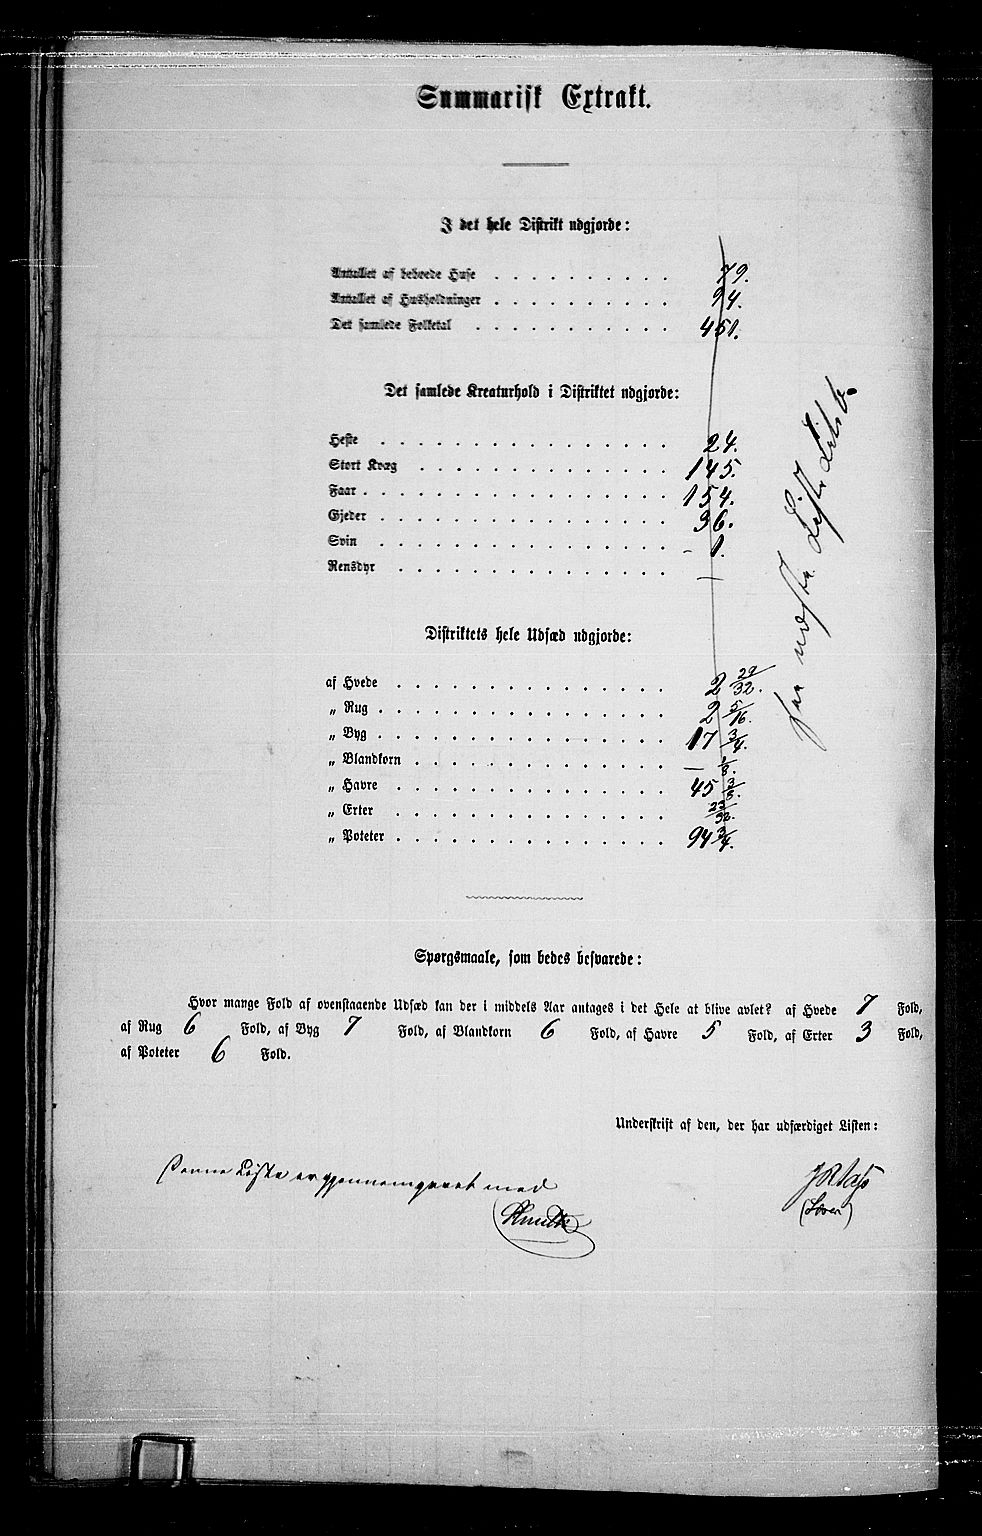 Summarisk Extrakt.
I det hele Distrikt udgjorde:
Antallet af beboede Huse . . . . . . . . . . 79.
Antallet af Husholdninger . . . . . . . . . . 94.
Det samlede Folketal . . . . . . . . . . . 451.
Det samlede Kreaturhold i Distriktet udgjorde:
Heste . . . . . . . . . . . . . . . . 24.
Stort Kvæg . . . . . . . . . . . . . . 145.
Faar . . . . . . . . . . . . . . . . . 154.
Gjeder . . . . . . . . . . . . . . . . 36.
Svin . . . . . . . . . . . . . . . . – 1.
Rensdyr . . . . . . . . . . . . . . . –
Distriktets hele Udsæd udgjorde:
af Hvede . . . . . . . . . . . . . . . 2 29/32.
„ Rug . . . . . . . . . . . . . . . . 2 5/16.
„ Byg . . . . . . . . . . . . . . . . 17 3/4.
„ Blandkorn . . . . . . . . . . . . . – 1/8.
„ Havre . . . . . . . . . . . . . . . 45 3/8.
„ Erter . . . . . . . . . . . . . . . 23/32.
„ Poteter . . . . . . . . . . . . . . 94 3/4.
see næste Liste Litr. b.
Spørgsmaale, som bedes besvarede:
Hvor mange Fold af ovenstaaende Udsæd kan der i middels Aar antages i det Hele at blive avlet? af Hvede 7 Fold,
af Rug 6 Fold, af Byg 7 Fold, af Blandkorn 6 Fold, af Havre 5 Fold, af Erter 3 Fold,
af Poteter 6 Fold.
Underskrift af den, der har udfærdiget Listen:
Denne Liste er gjennemgaaet med